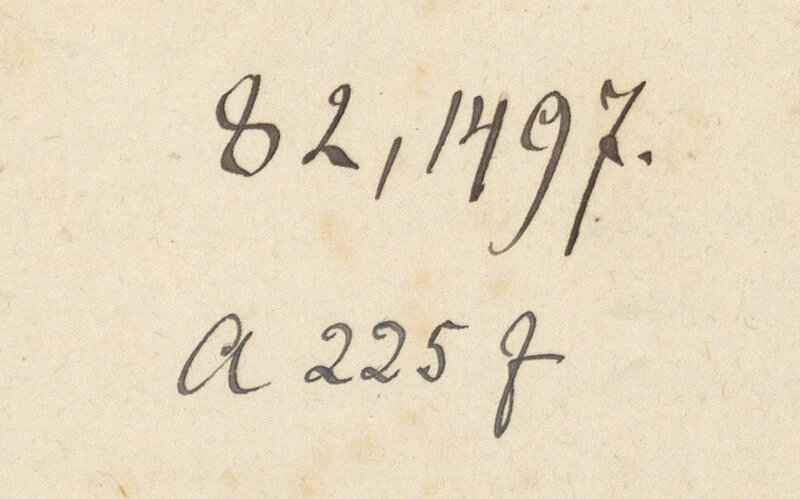 82, 1497.
A 225 f